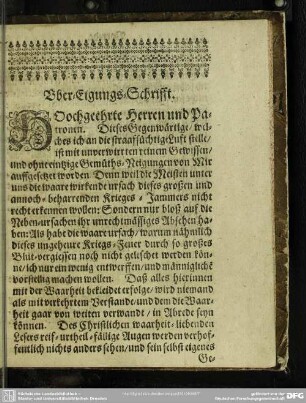 Vber-Eigungs-Schrifft.
HOchgeehrte Herren und Pa-
tronen. Dieses Gegenwärtige / wel-
ches ich an die straafsüchtige Luft stelle /
ist mit unverwirrten reinem Gewissen /
und ohne eintzige Gemüths-Neigungen von Mir
auffgesetzet worden. Denn weil die Meisten unter
uns die waare wirckende ursach dieses grossen und
annoch-beharrenden Krieges-Jammers nicht
recht erkennen wollen; Sondern nur bloß auf die
Neben-ursachen ihr unrechtmässiges Absehen ha-
ben: Als habe die waare ursach / warum nähmlich
dieses ungeheure Kriegs-Feuer durch so großes
Blut-vergiessen noch nicht geleschet werden kön-
ne / ich nur ein wenig entwerffen / und männiglich
vorstellig machen wollen. Daß alles hierinnen
mit der Waarheit bekleidet erfolge / wird niemand
als mit verkehrtem Verstande / und dem die Waar-
heit gaar von weiten verwandt / in Abrede seyn
können. Des Christlichen waarheit-liebenden
Lesers reif-urtheil-fällige Augen werden verhof-
fentlich nichts anders sehen / und sein selbst eigenes
Ge-